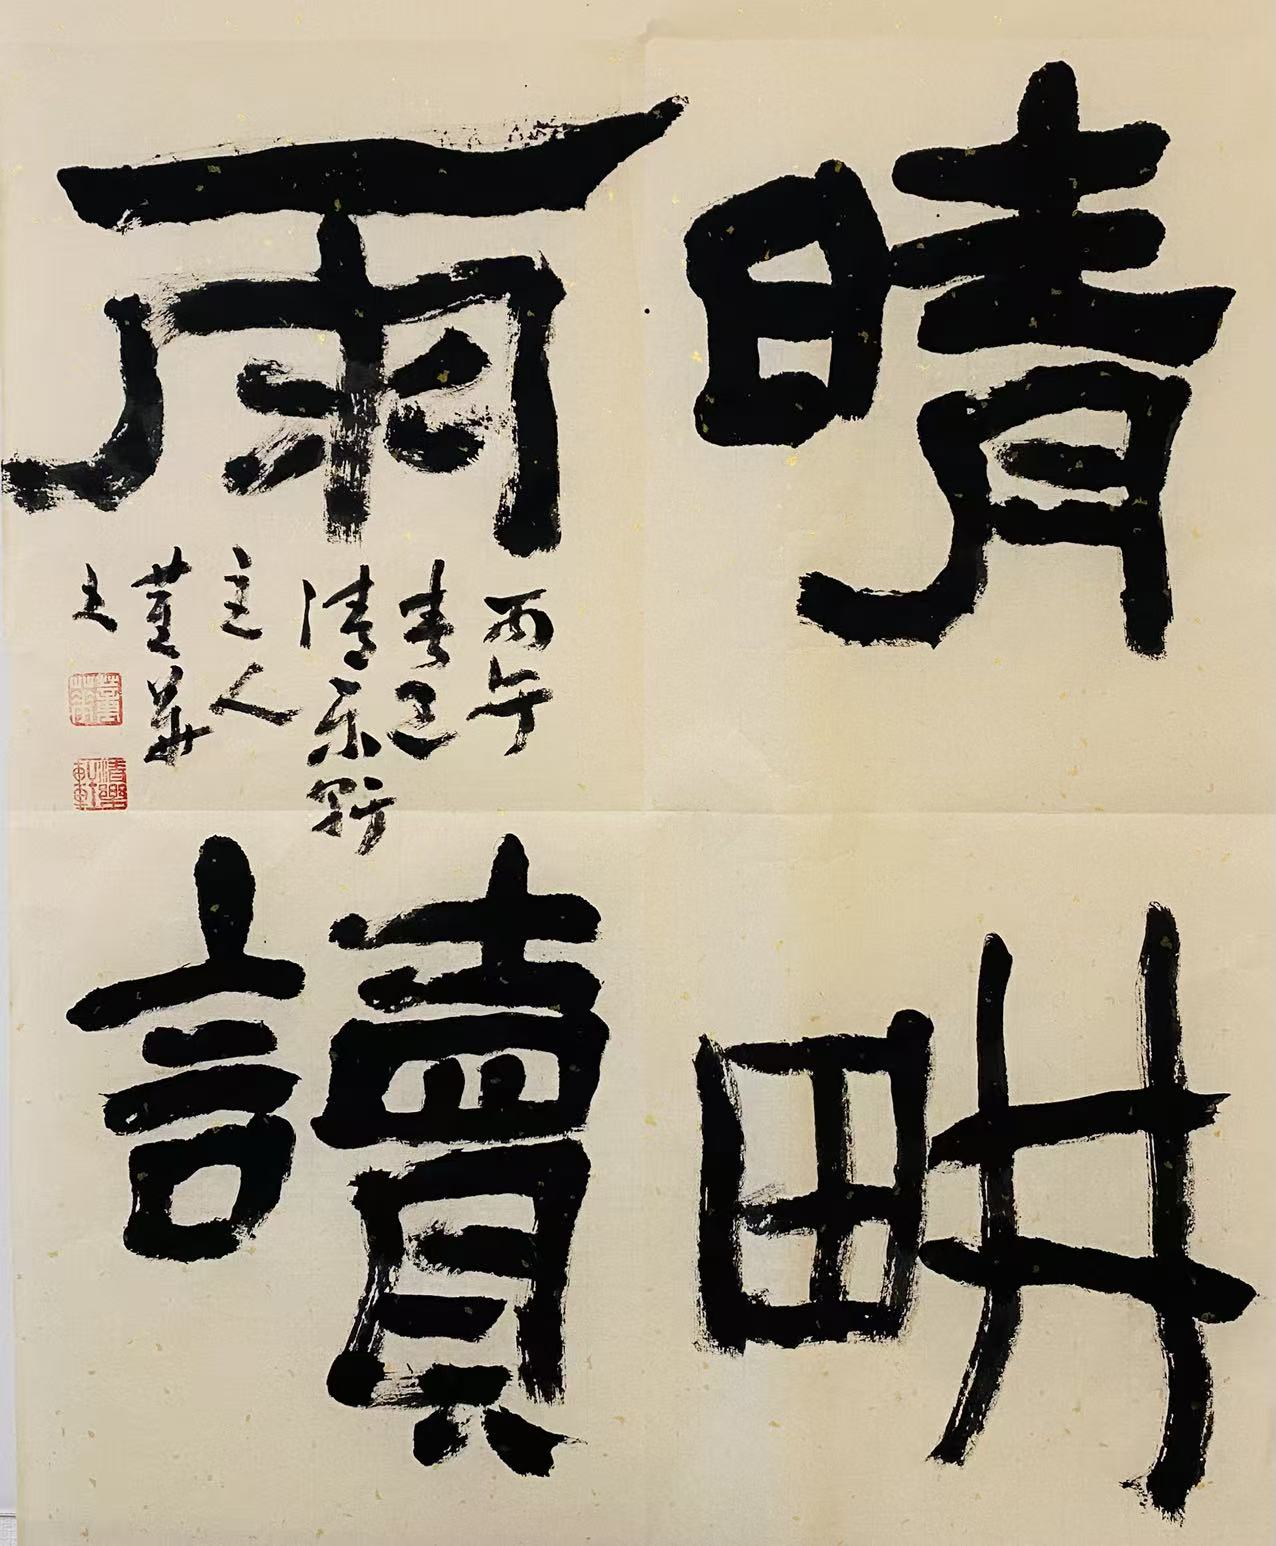 晴畊
雨讀
丙午
春
清乐軒
主人
董華
董華
清樂軒